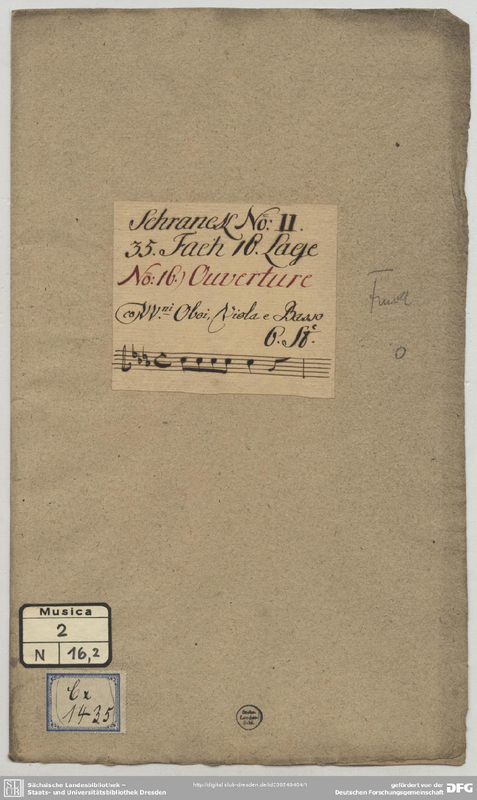 Schranck No: II.
35. Fach 16. Lage
No: 16.) Ouverture
co VV.ni Oboi, Viola e Basso
6. St.
Musica
2
N 16,2
Cx
1435
Sächsische Landesbibliothek –
Staats- und Universitätsbibliothek Dresden
gefördert von der
Deutschen Forschungsgemeinschaft
DFG